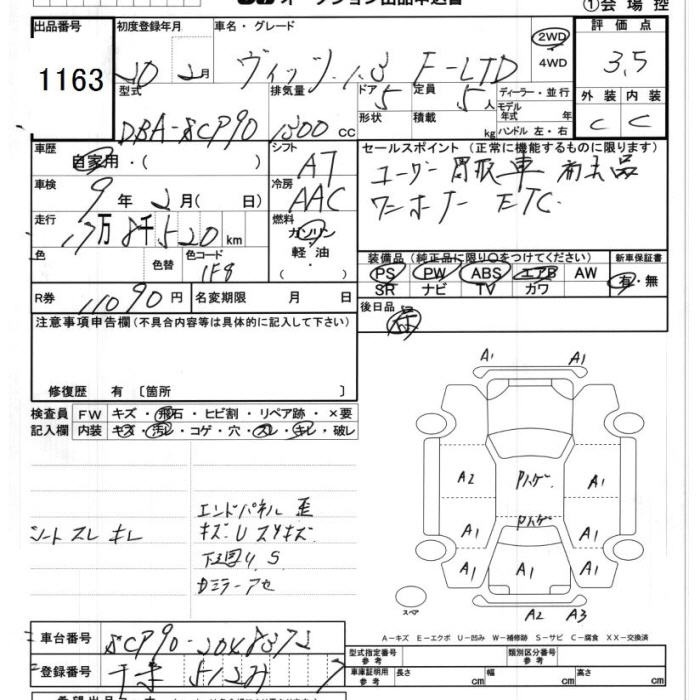 ①会 場 控
出品番号 初度登録年月 車名・グレード 評 価 点
1163 20 年 2月 ヴィッツ 1.3 F-LTD 2WD 4WD 3.5
型式 排気量 ドア 定員 ディーラー・並 行 外 装 内 装
DBA-SCP90 1300 cc 5 5人 モデル年式 年 C C
形状 積載 kg ハンドル 左・右
車歴 シフト セールスポイント (正常に機能するものに限ります)
自家用・( ) AT ユーザー買取車
車検 冷房 ワンオーナー ETC
9 年 2 月( 日) AAC
走行 燃料
17万 8千 520 km ガソリン
色 色替 色コード 軽・油 装備品 (純正品に限り○をつけてください) 新車保証書
1F8 ・( ) PS PW ABS エアB AW 有・無
SR ナビ TV カワ
R券 11090 円 名変期限 月 日 後日品
注意事項申告欄 (不具合内容等は具体的に記入して下さい)
修復歴 有 〔箇所 〕
検査員 FW キズ・飛石・ヒビ割・リペア跡・×要
記入欄 内装 キズ・汚レ・コゲ・穴・スレ・キレ・破レ
A1 A1
A2 A1
A1 A1
A1 A1 A1
A2 A3
エンドパネル 歪
シート スレ キレ キズU スリキズ
下回り S
スペア
A－キズ E－エクボ U－凹み W－補修跡 S－サビ C－腐食 XX－交換済
車台番号 SCP90-2048372 型式指定番号 参考 類別区分番号 参考
登録番号 車庫証明用 参考 長さ cm 幅 cm 高さ cm